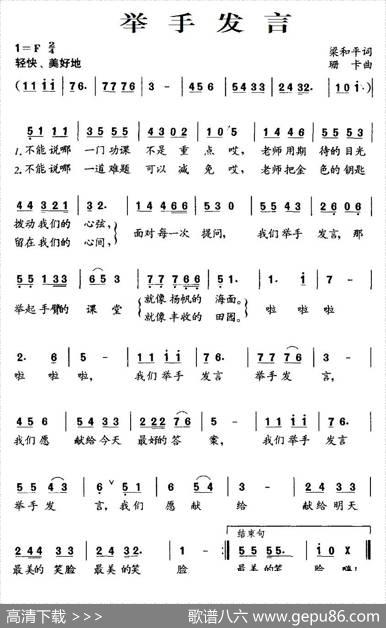 举手发言
1=F 2/4
梁和平词
轻快、美好地
珊卡曲
(1 1 i i | 7 6. | 7 7 7 6 | 3 - | 4 5 6 | 5 4 3 3 | 2 4 3 2. | 1 0 i. )
5 1 1 1 | 3 5 5 5 | 4 3 0 2 | 1 0 5 | 1 4 4 6 | 5 5 4 3
1.不能说哪 一门功课 不是重点哎, 老师用期待的目光
2.不能说哪 一道难题 可以减免哎, 老师把金色的钥匙
4 4 3 2 1 | 3 2. | 1 4 4 6 6 | 5 3 0 | 5 5 4 3 | 2 6 0 6
拨动我们的心弦, 面对每一次提问, 我们举手发言,那
留在我们的心间,
5 5 1 3 3 | 6 5 3 | 7 7 7 6 6 | 5 1. | 1. i | 7 -
举起手臂的课堂 就像扬帆的海面。 啦 啦 啦
就像丰收的田园。
2. 6 | 5 - | 1 1 i i | 7 6. | 7 7 7 6 | 3 -
啦 啦 啦, 我们举手发言 举手发言,
4 5 6 | 5 4 3 3 | 2 2 2 7 6 | 5 - | 1 1 i i | 7 6.
我们愿 献给今天 最好的答案, 我们举手发言
5 5 4 3 | 6 5 1 | 3 5 0 | 4 3 | 3 - | 2 4 4 3
举手发言,我们愿献给 献给明天
结束句
2 4 4 3 3 | 2 4 3 2. | 1 - :| 5 5 5 5. | i 0 X ‖
最美的笑脸 最美的笑脸 最美的笑脸
高清下载 >>>
歌谱八六 www.gepu86.com